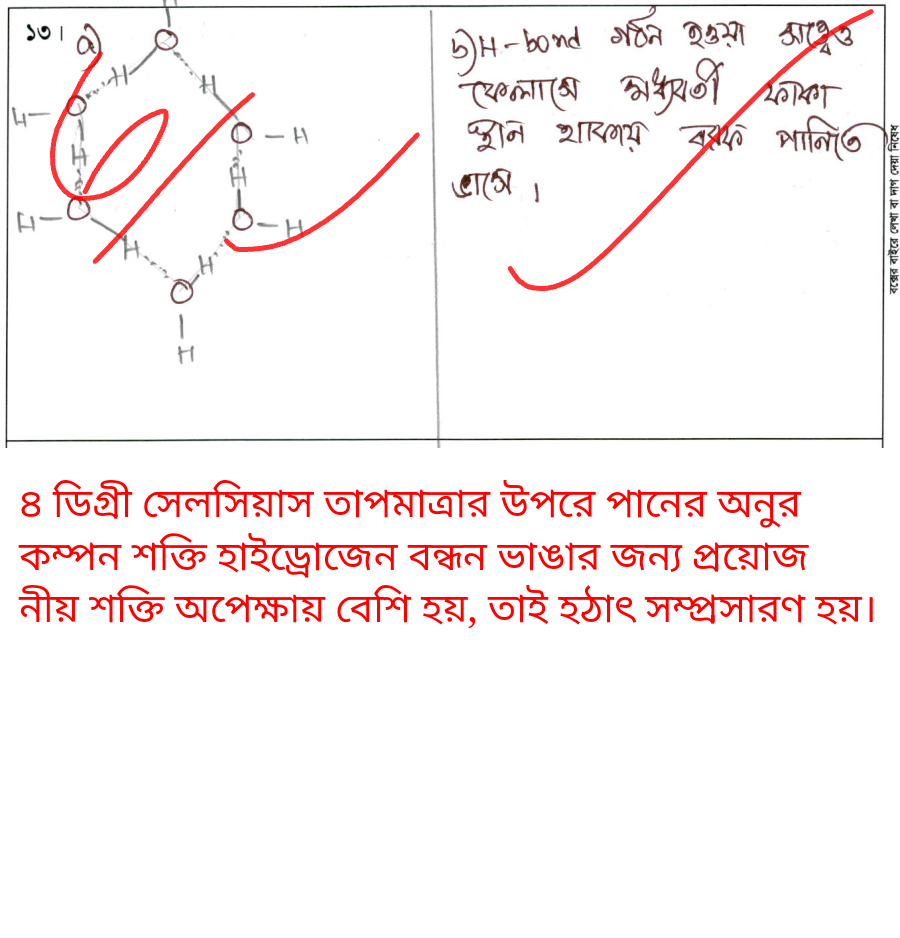 ১৩। a)
H
O
H
H
H- O
O - H
H
H
H- O
O - H
H
H
O
H
b) H-bond গঠন হওয়া সত্ত্বেও
কেলাসে মধ্যবর্তী ফাকা
স্থান থাকায় বরফ পানিতে
ভাসে।
বক্সের বাইরে লেখা বা দাগ দেয়া নিষেধ
৪ ডিগ্রী সেলসিয়াস তাপমাত্রার উপরে পানের অনুর
কম্পন শক্তি হাইড্রোজেন বন্ধন ভাঙার জন্য প্রয়োজ
নীয় শক্তি অপেক্ষায় বেশি হয়, তাই হঠাৎ সম্প্রসারণ হয়।